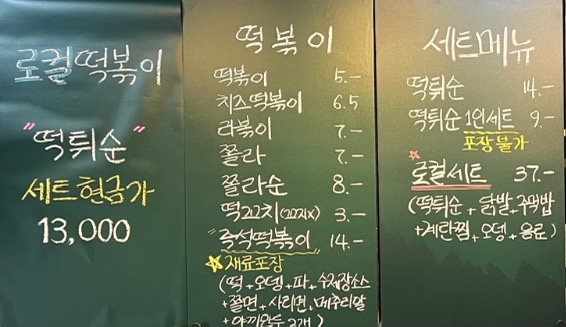 로컬떡볶이
"떡튀순"
세트현금가
13,000
떡볶이
떡볶이 5.-
치즈떡볶이 6.5
라볶이 7.-
쫄라 7.-
쫄라순 8.-
떡꼬치(2021x) 3.-
"즉석떡볶이" 14.-
☆재료포장
(떡+오뎅+파+수제장소스
+쫄면+사리면+메추리알
+야끼만두2개)
세트메뉴
떡튀순 14.-
떡튀순1인세트 9.-
포장불가
☆로컬세트 37.-
(떡튀순+닭발+주먹밥
+계란찜+오뎅+음료)